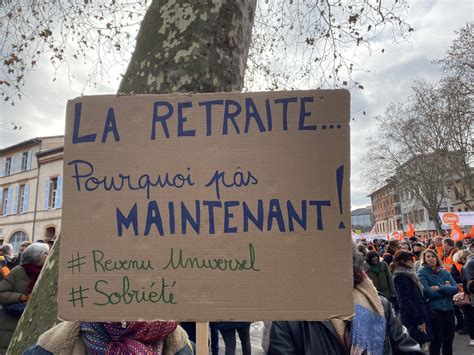 LA RETRAITE...
Pourquoi pas
MAINTENANT!
# Revenu Universel
# Sobriété